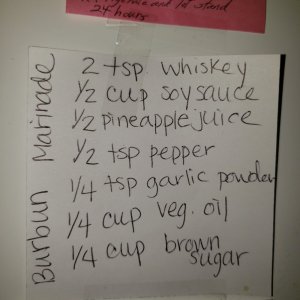 and let stand
24 hours
Burbun Marinade
2 tsp. whiskey
1/2 cup soy sauce
1/2 pineapple juice
1/2 tsp pepper
1/4 tsp garlic powder
1/4 cup veg. oil
1/4 cup brown
sugar